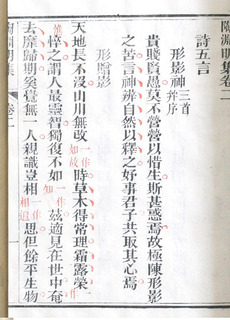 陶淵明集卷二
詩五言
形影神三首并序
貴賤賢愚莫不營營以惜生斯甚惑焉故極陳形影
之苦言神辨自然以釋之好事君子共取其心焉
形贈影
天地長不沒山川無改一作如故時草木得常理霜露榮
悴之謂人最靈智獨復不如一作茲適見在世中奄
去靡歸期奚覺無一人親識豈相一作相追思但餘平生物
陶淵明集 卷二